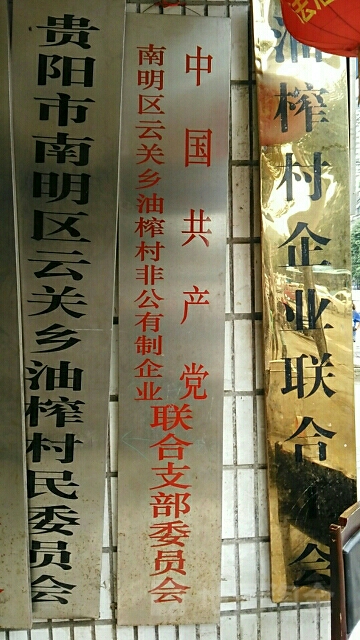 贵阳市南明区云关乡油榨村民委员会
中国共产党
南明区云关乡油榨村非公有制企业
联合支部委员会
油榨村企业联合会